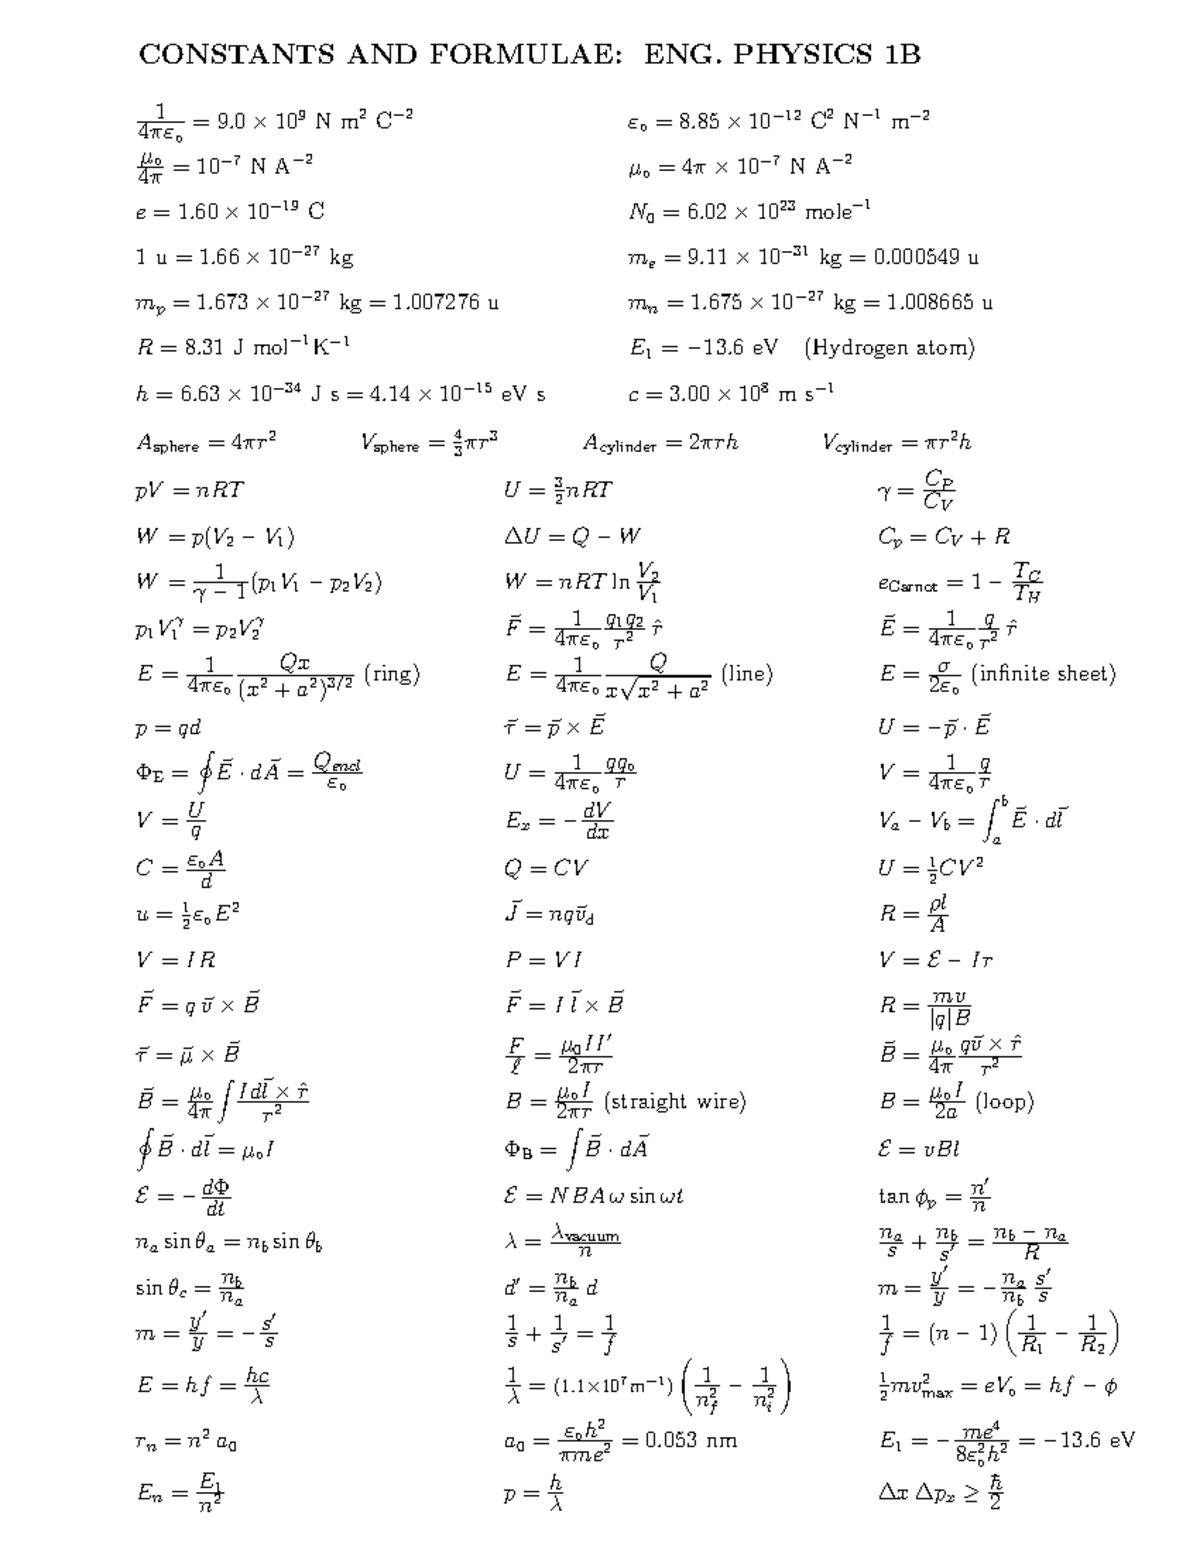 CONSTANTS AND FORMULAE: ENG. PHYSICS 1B
$\frac{1}{4\pi\varepsilon_o} = 9.0 \times 10^9$ N m$^2$ C$^{-2}$ $\varepsilon_o = 8.85 \times 10^{-12}$ C$^2$ N$^{-1}$ m$^{-2}$
$\frac{\mu_o}{4\pi} = 10^{-7}$ N A$^{-2}$ $\mu_o = 4\pi \times 10^{-7}$ N A$^{-2}$
$e = 1.60 \times 10^{-19}$ C $N_0 = 6.02 \times 10^{23}$ mole$^{-1}$
1 u $= 1.66 \times 10^{-27}$ kg $m_e = 9.11 \times 10^{-31}$ kg $= 0.000549$ u
$m_p = 1.673 \times 10^{-27}$ kg $= 1.007276$ u $m_n = 1.675 \times 10^{-27}$ kg $= 1.008665$ u
$R = 8.31$ J mol$^{-1}$K$^{-1}$ $E_1 = -13.6$ eV (Hydrogen atom)
$h = 6.63 \times 10^{-34}$ J s $= 4.14 \times 10^{-15}$ eV s $c = 3.00 \times 10^8$ m s$^{-1}$
$A_{\text{sphere}} = 4\pi r^2$ $V_{\text{sphere}} = \frac{4}{3}\pi r^3$ $A_{\text{cylinder}} = 2\pi rh$ $V_{\text{cylinder}} = \pi r^2 h$
$pV = nRT$ $U = \frac{3}{2}nRT$ $\gamma = \frac{C_P}{C_V}$
$W = p(V_2 - V_1)$ $\Delta U = Q - W$ $C_p = C_V + R$
$W = \frac{1}{\gamma - 1}(p_1V_1 - p_2V_2)$ $W = nRT \ln \frac{V_2}{V_1}$ $e_{\text{Carnot}} = 1 - \frac{T_C}{T_H}$
$p_1V_1^\gamma = p_2V_2^\gamma$ $\vec{F} = \frac{1}{4\pi\varepsilon_o}\frac{q_1q_2}{r^2}\hat{r}$ $\vec{E} = \frac{1}{4\pi\varepsilon_o}\frac{q}{r^2}\hat{r}$
$E = \frac{1}{4\pi\varepsilon_o}\frac{Qx}{(x^2 + a^2)^{3/2}}$ (ring) $E = \frac{1}{4\pi\varepsilon_o}\frac{Q}{x\sqrt{x^2 + a^2}}$ (line) $E = \frac{\sigma}{2\varepsilon_o}$ (infinite sheet)
$p = qd$ $\vec{\tau} = \vec{p} \times \vec{E}$ $U = -\vec{p} \cdot \vec{E}$
$\Phi_{\text{E}} = \oint \vec{E} \cdot d\vec{A} = \frac{Q_{encl}}{\varepsilon_o}$ $U = \frac{1}{4\pi\varepsilon_o}\frac{qq_o}{r}$ $V = \frac{1}{4\pi\varepsilon_o}\frac{q}{r}$
$V = \frac{U}{q}$ $E_x = -\frac{dV}{dx}$ $V_a - V_b = \int_a^b \vec{E} \cdot d\vec{l}$
$C = \frac{\varepsilon_o A}{d}$ $Q = CV$ $U = \frac{1}{2}CV^2$
$u = \frac{1}{2}\varepsilon_o E^2$ $\vec{J} = nq\vec{v}_{\text{d}}$ $R = \frac{\rho l}{A}$
$V = IR$ $P = VI$ $V = \mathcal{E} - Ir$
$\vec{F} = q\,\vec{v} \times \vec{B}$ $\vec{F} = I\,\vec{l} \times \vec{B}$ $R = \frac{mv}{|q|B}$
$\vec{\tau} = \vec{\mu} \times \vec{B}$ $\frac{F}{\ell} = \frac{\mu_0 II'}{2\pi r}$ $\vec{B} = \frac{\mu_o}{4\pi}\frac{q\vec{v} \times \hat{r}}{r^2}$
$\vec{B} = \frac{\mu_o}{4\pi}\int\frac{Id\vec{l} \times \hat{r}}{r^2}$ $B = \frac{\mu_o I}{2\pi r}$ (straight wire) $B = \frac{\mu_o I}{2a}$ (loop)
$\oint \vec{B} \cdot d\vec{l} = \mu_o I$ $\Phi_{\text{B}} = \int \vec{B} \cdot d\vec{A}$ $\mathcal{E} = vBl$
$\mathcal{E} = -\frac{d\Phi}{dt}$ $\mathcal{E} = NBA\omega \sin \omega t$ $\tan \phi_p = \frac{n'}{n}$
$n_a \sin \theta_a = n_b \sin \theta_b$ $\lambda = \frac{\lambda_{\text{vacuum}}}{n}$ $\frac{n_a}{s} + \frac{n_b}{s'} = \frac{n_b - n_a}{R}$
$\sin \theta_c = \frac{n_b}{n_a}$ $d' = \frac{n_b}{n_a}\,d$ $m = \frac{y'}{y} = -\frac{n_a}{n_b}\frac{s'}{s}$
$m = \frac{y'}{y} = -\frac{s'}{s}$ $\frac{1}{s} + \frac{1}{s'} = \frac{1}{f}$ $\frac{1}{f} = (n - 1)\left(\frac{1}{R_1} - \frac{1}{R_2}\right)$
$E = hf = \frac{hc}{\lambda}$ $\frac{1}{\lambda} = (1.1 \times 10^7 \text{m}^{-1})\left(\frac{1}{n_f^2} - \frac{1}{n_i^2}\right)$ $\frac{1}{2}mv_{\text{max}}^2 = eV_o = hf - \phi$
$r_n = n^2\,a_0$ $a_0 = \frac{\varepsilon_o h^2}{\pi me^2} = 0.053$ nm $E_1 = -\frac{me^4}{8\varepsilon_o^2h^2} = -13.6$ eV
$E_n = \frac{E_1}{n^2}$ $p = \frac{h}{\lambda}$ $\Delta x\,\Delta p_x \geq \frac{\hbar}{2}$